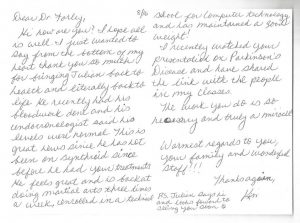 Dear Dr Yorley, 8/16
Hi how are you? I hope all
is well. I just wanted to
say from the bottom of my
heart thank you so much
for bringing Julian back to
health and literally back to
life. He recently had his
bloodwork done and his
endocrinologist said his
levels were normal. This is
great news since he has not
been on synthroid since
before he had your treatments.
He feels great and is back at
doing martial arts three times
a week, enrolled in a technical
school for computer technology
and has maintained a good
weight!
I recently watched your
presentation on Parkinson's
Disease and have shared
the link with the people
in my classes.
The work you do is so
and truly a miracle
Warmest regards to you,
your family and wonderful
staff!!!
Thanks again,
P.S. Julian says hi
and looks forward to
seeing your soon